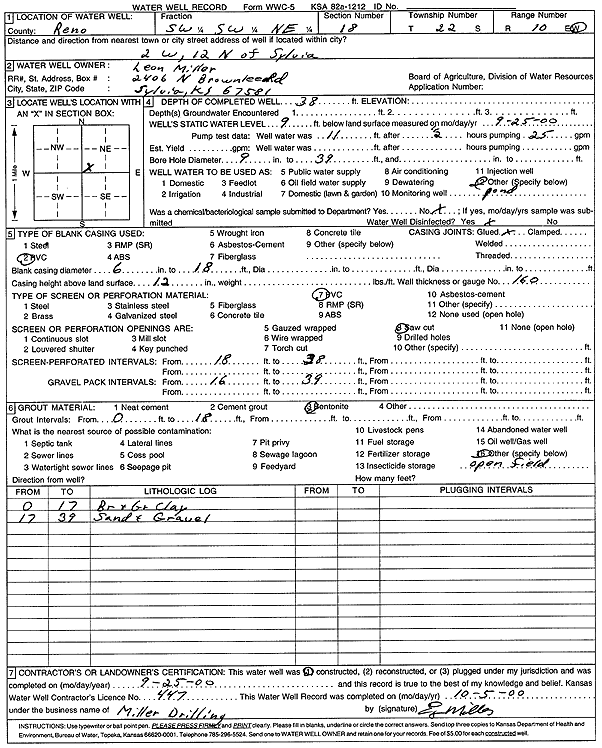 WATER WELL RECORD Form WWC-5 KSA 82a-1212 ID No.
1 LOCATION OF WATER WELL: Fraction Section Number Township Number Range Number
County: Reno SW ¼ SW ¼ NE ¼ 18 T 22 S R 10 E/W
Distance and direction from nearest town or city street address of well if located within city?
2 W, 12 N of Sylvia
2 WATER WELL OWNER: Leon Miller
RR#, St. Address, Box # : 2406 N Brownlee Rd Board of Agriculture, Division of Water Resources
City, State, ZIP Code : Sylvia, KS 67581 Application Number:
3 LOCATE WELL'S LOCATION WITH AN "X" IN SECTION BOX:
N
NW NE
W X E
SW SE
S
4 DEPTH OF COMPLETED WELL 38 ft. ELEVATION:
Depth(s) Groundwater Encountered 1 ft. 2 ft. 3 ft.
WELL'S STATIC WATER LEVEL 9 ft. below land surface measured on mo/day/yr 9-25-00
Pump test data: Well water was 11 ft. after ½ hours pumping 25 gpm
Est. Yield gpm: Well water was ft. after hours pumping gpm
Bore Hole Diameter 9 in. to 39 ft., and in. to ft.
WELL WATER TO BE USED AS: 5 Public water supply 8 Air conditioning 11 Injection well
1 Domestic 3 Feedlot 6 Oil field water supply 9 Dewatering 12 Other (Specify below)
2 Irrigation 4 Industrial 7 Domestic (lawn & garden) 10 Monitoring well pond
Was a chemical/bacteriological sample submitted to Department? Yes No X ; If yes, mo/day/yrs sample was submitted Water Well Disinfected? Yes X No
5 TYPE OF BLANK CASING USED: 5 Wrought Iron 8 Concrete tile CASING JOINTS: Glued X Clamped
1 Steel 3 RMP (SR) 6 Asbestos-Cement 9 Other (specify below) Welded
2 PVC 4 ABS 7 Fiberglass Threaded
Blank casing diameter 6 in. to 18 ft., Dia in. to ft., Dia in. to ft.
Casing height above land surface 12 in., weight lbs./ft. Wall thickness or gauge No. 160
TYPE OF SCREEN OR PERFORATION MATERIAL: 7 PVC 10 Asbestos-cement
1 Steel 3 Stainless steel 5 Fiberglass 8 RMP (SR) 11 Other (specify)
2 Brass 4 Galvanized steel 6 Concrete tile 9 ABS 12 None used (open hole)
SCREEN OR PERFORATION OPENINGS ARE: 5 Gauzed wrapped 8 Saw cut 11 None (open hole)
1 Continuous slot 3 Mill slot 6 Wire wrapped 9 Drilled holes
2 Louvered shutter 4 Key punched 7 Torch cut 10 Other (specify) ft.
SCREEN-PERFORATED INTERVALS: From 18 ft. to 38 ft., From ft. to ft.
From ft. to ft., From ft. to ft.
GRAVEL PACK INTERVALS: From 16 ft. to 39 ft., From ft. to ft.
From ft. to ft., From ft. to ft.
6 GROUT MATERIAL: 1 Neat cement 2 Cement grout 3 Bentonite 4 Other
Grout Intervals: From 0 ft. to 18 ft., From ft. to ft., From ft. to ft.
What is the nearest source of possible contamination: 10 Livestock pens 14 Abandoned water well
1 Septic tank 4 Lateral lines 7 Pit privy 11 Fuel storage 15 Oil well/Gas well
2 Sewer lines 5 Cess pool 8 Sewage lagoon 12 Fertilizer storage 16 Other (specify below)
3 Watertight sewer lines 6 Seepage pit 9 Feedyard 13 Insecticide storage open field
Direction from well? How many feet?
FROM TO LITHOLOGIC LOG FROM TO PLUGGING INTERVALS
0 17 Br & Gr Clay
17 39 Sand & Gravel
7 CONTRACTOR'S OR LANDOWNER'S CERTIFICATION: This water well was (1) constructed, (2) reconstructed, or (3) plugged under my jurisdiction and was
completed on (mo/day/year) 9-25-00 and this record is true to the best of my knowledge and belief. Kansas
Water Well Contractor's Licence No. 447 This Water Well Record was completed on (mo/day/yr) 10-5-00
under the business name of Miller Drilling by (signature)
INSTRUCTIONS: Use typewriter or ball point pen. PLEASE PRESS FIRMLY and PRINT clearly. Please fill in blanks, underline or circle the correct answers. Send top three copies to Kansas Department of Health and
Environment, Bureau of Water, Topeka, Kansas 66620-0001. Telephone 785-296-5524. Send one to WATER WELL OWNER and retain one for your records. Fee of $5.00 for each constructed well.